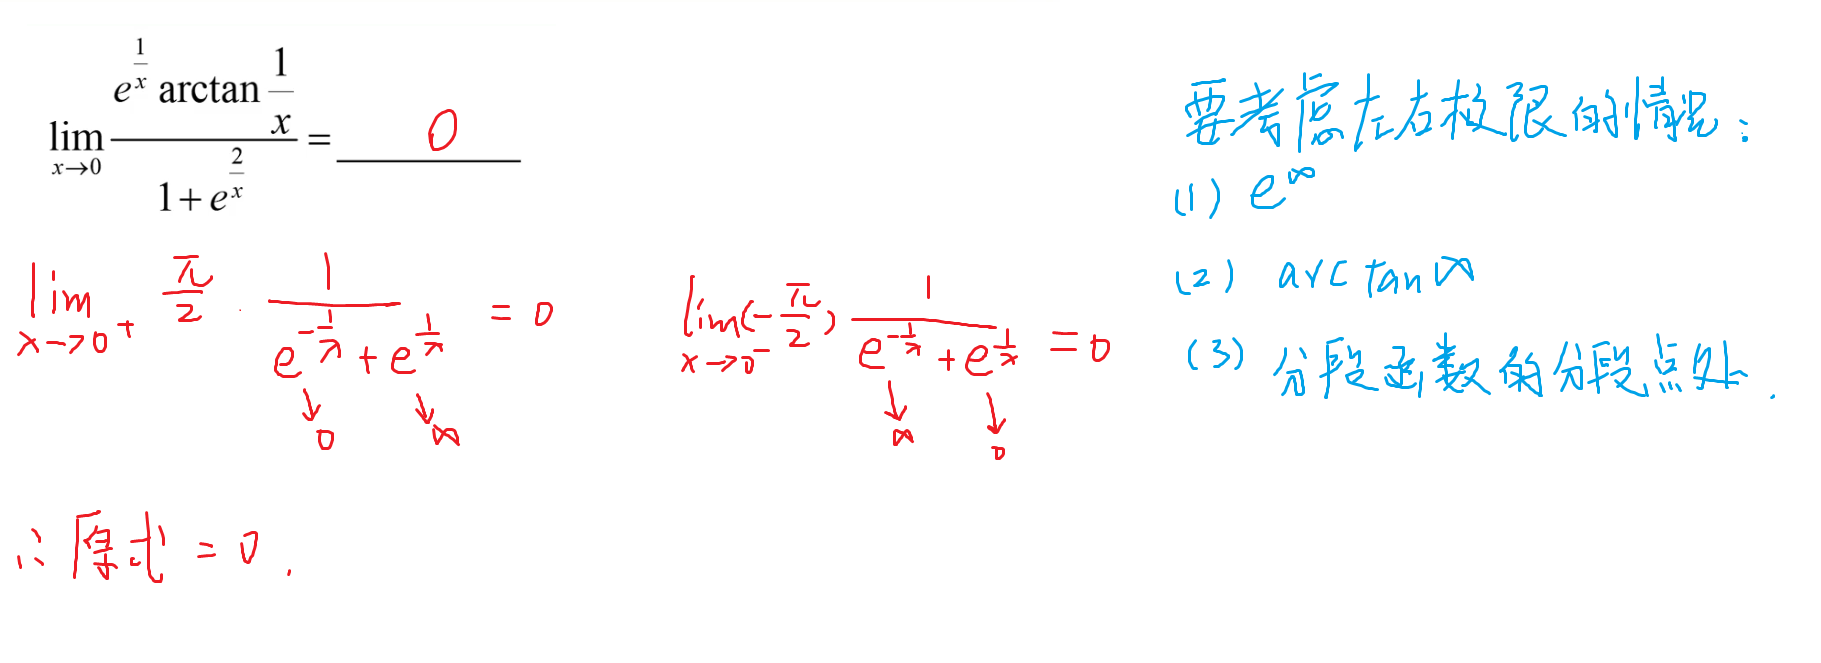 lim x→0 (e^(1/x) arctan 1/x) / (1 + e^(2/x)) = 0
lim x→0+ π/2 · 1 / (e^(-1/x) + e^(1/x)) = 0
↓ 0 ↓ ∞
lim x→0- (-π/2) 1 / (e^(-1/x) + e^(1/x)) = 0
↓ ∞ ↓ 0
∴ 原式 = 0.
要考虑左右极限的情况:
(1) e^∞
(2) arctan∞
(3) 分段函数的分段点处.